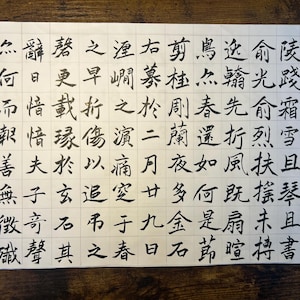 陵踐霜雪且琴且書
俞光俞烈扶搖未摶
迎翰先折風既扇暄
鳥点春還如何是節
剪桂剛蘭夜多金石
右墓於二月廿九日
湮嶰之演痛窆于春
之早折傷以追弔之
磬更載瑑於玄石其
辭曰愔愔夫子奇聲
何而朝善無徵殲